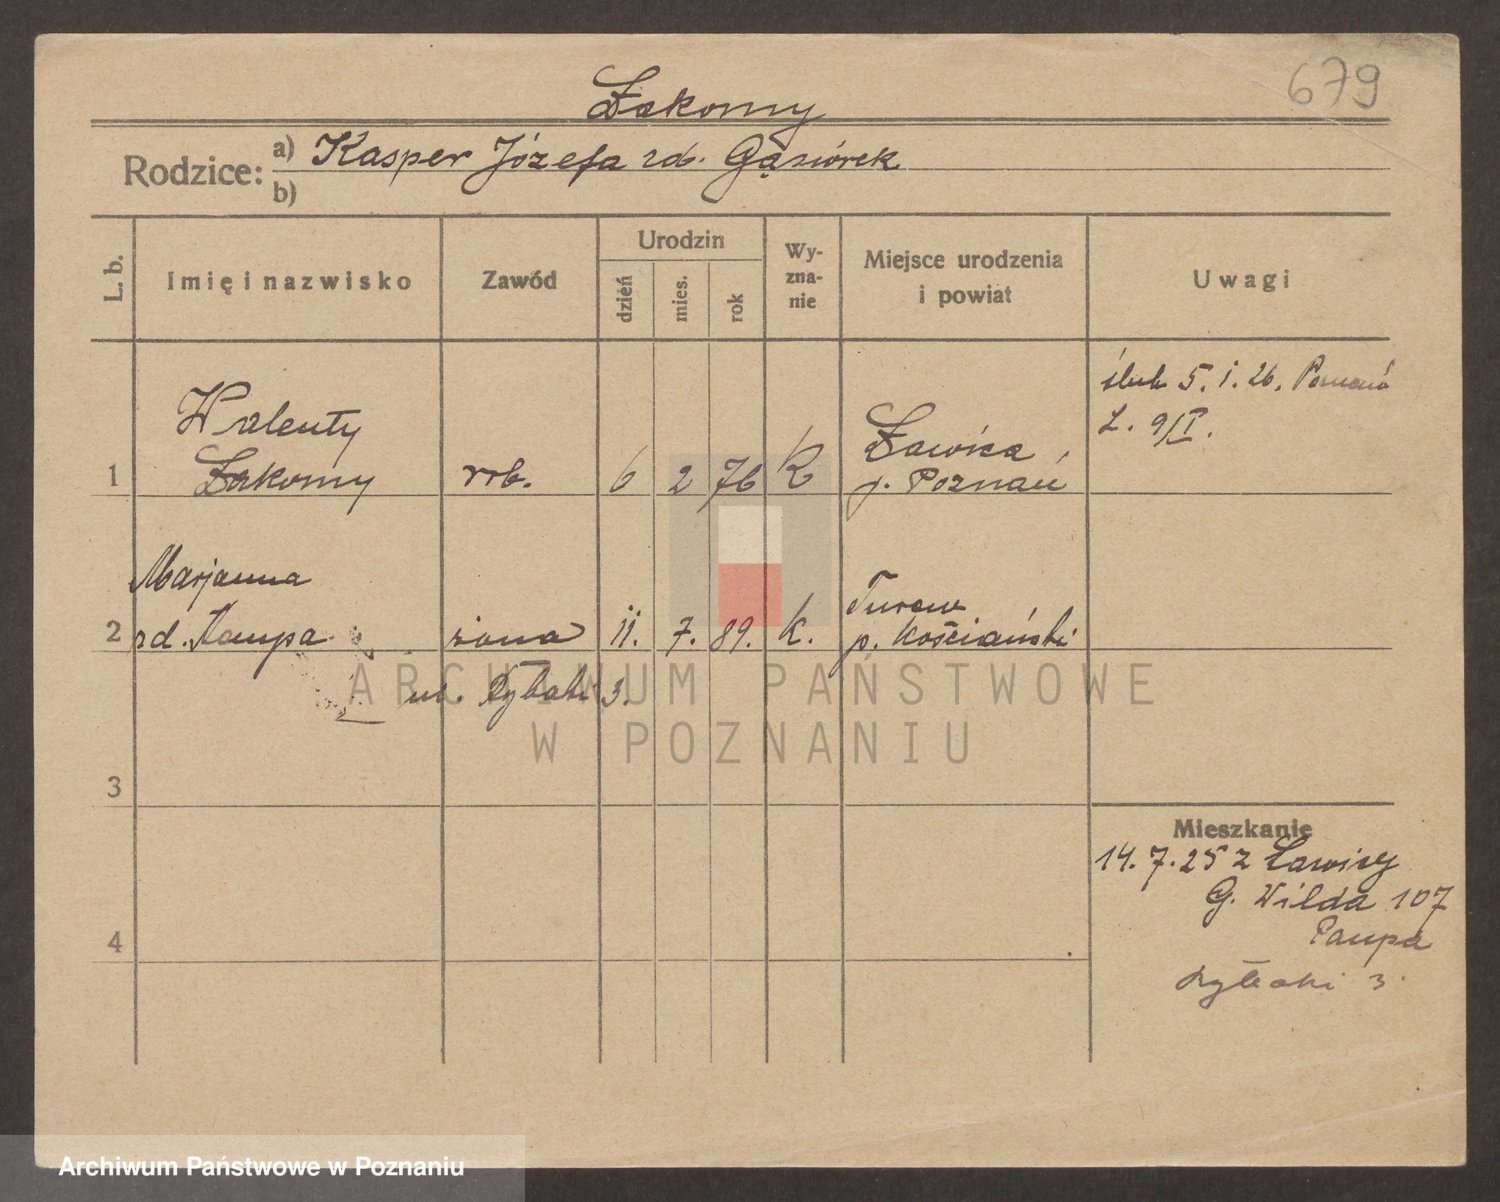 679
Łakomy
Rodzice: a) Kasper Józefa rd. Gąsiórek
b)
L. b.
Imię i nazwisko
Zawód
Urodzin
dzień
mies.
rok
Wy-
zna-
nie
Miejsce urodzenia
i powiat
Uwagi
ślub 5. 1. 26. Poznań
L. 9/I.
Walenty
1 Łakomy rob. 6 2 76 K
Ławica
p. Poznań
Marjanna
2 rd. Paupa żona 11. 7. 89. k.
Turew
p. Kościański
ul. Rybaki 3.
3
4
Mieszkanie
14. 7. 25 z Ławicy
G. Wilda 107
Paupa
Rybaki 3.
ARCHIWUM PAŃSTWOWE
W POZNANIU
Archiwum Państwowe w Poznaniu